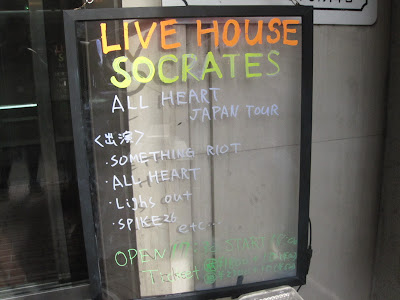 LIVE HOUSE
SOCRATES
ALL HEART
JAPAN TOUR
<出演>
・SOMETHING RIOT
・ALL HEART
・Lighs out
・SPIKE26
etc...
OPEN START
Ticket